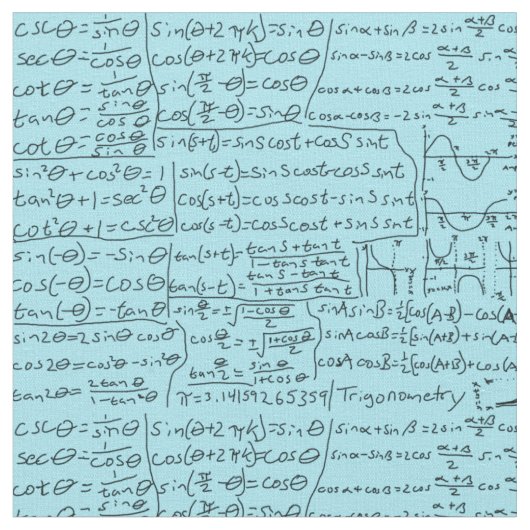 cscθ = 1/sinθ
secθ = 1/cosθ
cotθ = 1/tanθ
tanθ = sinθ/cosθ
cotθ = cosθ/sinθ
sin(θ+2πk) = sinθ
cos(θ+2πk) = cosθ
sin(π/2 - θ) = cosθ
cos(π/2 - θ) = sinθ
sinα + sinβ = 2sin α+β/2 cos
sinα - sinβ = 2cos α+β/2 sin
cosα + cosβ = 2cos α+β/2 cos
cosα - cosβ = -2sin α+β/2 sin
sin²θ + cos²θ = 1
tan²θ + 1 = sec²θ
cot²θ + 1 = csc²θ
sin(s+t) = sin s cos t + cos s sin t
sin(s-t) = sin s cos t - cos s sin t
cos(s+t) = cos s cos t - sin s sin t
cos(s-t) = cos s cos t + sin s sin t
sin(-θ) = -sinθ
cos(-θ) = cosθ
tan(-θ) = -tanθ
tan(s+t) = tan s + tan t / 1 - tan s tan t
tan(s-t) = tan s - tan t / 1 + tan s tan t
sin2θ = 2sinθ cosθ
cos2θ = cos²θ - sin²θ
tan2θ = 2tanθ / 1 - tan²θ
sin θ/2 = ±√(1-cosθ / 2)
cos θ/2 = ±√(1+cosθ / 2)
tan θ/2 = sinθ / 1+cosθ
sinA sinB = ½[cos(A-B) - cos(A
sinA cosB = ½[sin(A+B) + sin(A
cosA cosB = ½[cos(A+B) + cos(A
π = 3.14159265359
Trigonometry
cscθ = 1/sinθ
secθ = 1/cosθ
cotθ = 1/tanθ
tanθ = sinθ
sin(θ+2πk) = sinθ
cos(θ+2πk) = cosθ
sin(π/2 - θ) = cosθ
cos(π/2 - θ) = sinθ
sinα + sinβ = 2sin α+β/2 cos
sinα - sinβ = 2cos α+β/2 sin
cosα + cosβ = 2cos α+β/2 cos